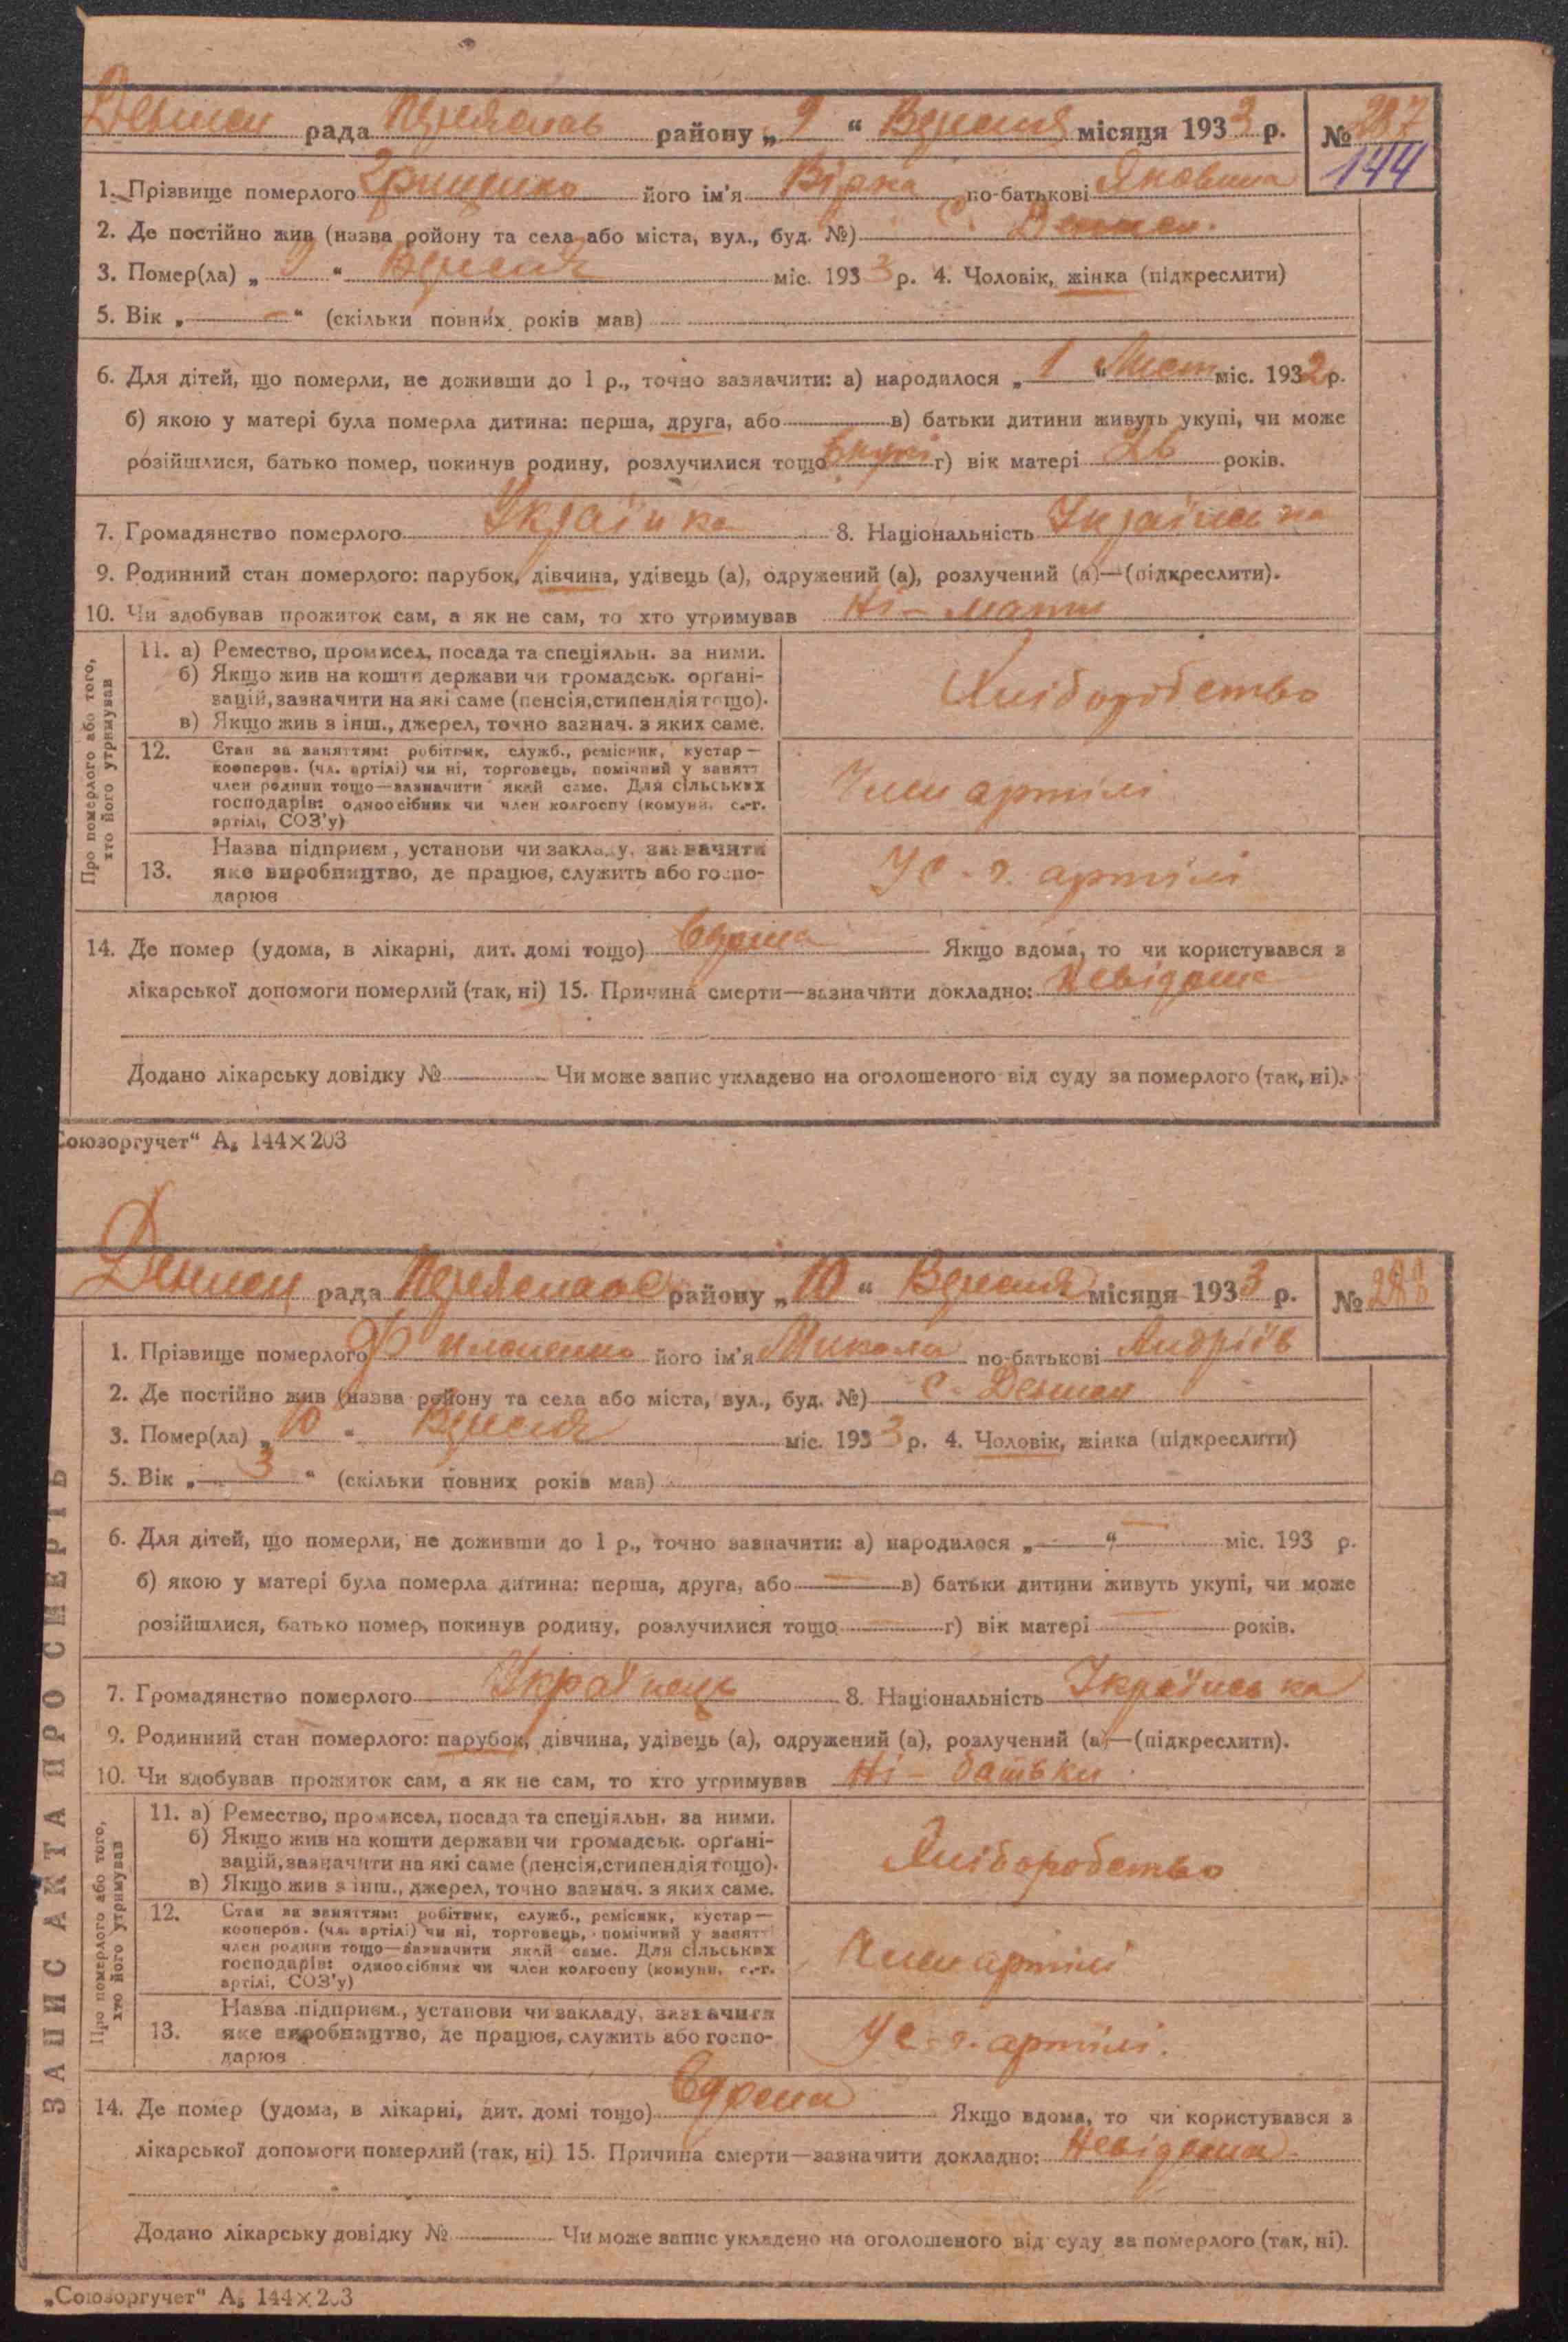 Деньги рада Переяслав району „9“ Вересня місяця 1933 р. № 287
144
1. Прізвище померлого Грищенко його ім'я Вірка по-батькові Яковина
2. Де постійно жив (назва ройону та села або міста, вул., буд. №) С.
3. Помер(ла) „9“ Вересня міс. 1933 р. 4. Чоловік, жінка (підкреслити)
5. Вік „—“ (скільки повних років мав)
6. Для дітей, що померли, не доживши до 1 р., точно зазначити: а) народилося „1“ Лист міс. 1932 р.
б) якою у матері була померла дитина: перша, друга, або — в) батьки дитини живуть укупі, чи може
розійшлися, батько помер, покинув родину, розлучилися тощо Вкупі г) вік матері 26 років.
7. Громадянство померлого Українка 8. Національність Українська
9. Родинний стан померлого: парубок, дівчина, удівець (а), одружений (а), розлучений (а)—(підкреслити).
10. Чи здобував прожиток сам, а як не сам, то хто утримував Ні – мати
Про померлого або того,
хто його утримував
11. а) Ремество, промисел, посада та спеціяльн. за ними.
б) Якщо жив на кошти держави чи громадськ. органі-
зацій, зазначити на які саме (пенсія, стипендія тощо).
в) Якщо жив з інш., джерел, точно зазнач. з яких саме.
Хліборобство
12. Стан за заняттям: робітник, служб., ремісник, кустар—
кооперов. (чл. артілі) чи ні, торговець, помічний у занятт
член родини тощо—зазначити який саме. Для сільських
господарів: одноосібник чи член колгоспу (комуни, с.-г.
артілі, СОЗ'у)
Член артілі
13. Назва підприєм., установи чи закладу, зазначити
яке виробництво, де працює, служить або госпо-
дарює
У С.-г. артілі
14. Де помер (удома, в лікарні, дит. домі тощо) Вдома Якщо вдома, то чи користувався з
лікарської допомоги померлий (так, ні) 15. Причина смерти—зазначити докладно: Невідома
Додано лікарську довідку № Чи може запис укладено на оголошеного від суду за померлого (так, ні).
Союзоргучет“ А₅ 144×203
рада Переяславс району „10“ Вересня місяця 1933 р. № 288
1. Прізвище померлого Филоненко його ім'я Микола по-батькові Андріїв
2. Де постійно жив (назва ройону та села або міста, вул., буд. №) с.
3. Помер(ла) „10“ Вересня міс. 1933 р. 4. Чоловік, жінка (підкреслити)
5. Вік „3“ (скільки повних років мав)
6. Для дітей, що померли, не доживши до 1 р., точно зазначити: а) народилося „—“ — міс. 193 р.
б) якою у матері була померла дитина: перша, друга, або — в) батьки дитини живуть укупі, чи може
розійшлися, батько помер, покинув родину, розлучилися тощо — г) вік матері — років.
7. Громадянство померлого Українець 8. Національність Українська
9. Родинний стан померлого: парубок, дівчина, удівець (а), одружений (а), розлучений (а)—(підкреслити).
10. Чи здобував прожиток сам, а як не сам, то хто утримував Ні – батьки
ЗАПИС АКТА ПРО СМЕРТЬ
Про померлого або того,
хто його утримував
11. а) Ремество, промисел, посада та спеціяльн. за ними.
б) Якщо жив на кошти держави чи громадськ. органі-
зацій, зазначити на які саме (пенсія, стипендія тощо).
в) Якщо жив з інш., джерел, точно зазнач. з яких саме.
Хліборобство
12. Стан за заняттям: робітник, служб., ремісник, кустар—
кооперов. (чл. артілі) чи ні, торговець, помічний у занятт
член родини тощо—зазначити який саме. Для сільських
господарів: одноосібник чи член колгоспу (комуни, с.-г.
артілі, СОЗ'у)
Член артілі
13. Назва підприєм., установи чи закладу, зазначити
яке виробництво, де працює, служить або госпо-
дарює
У с.-г. артілі.
14. Де помер (удома, в лікарні, дит. домі тощо) Вдома Якщо вдома, то чи користувався з
лікарської допомоги померлий (так, ні) 15. Причина смерти—зазначити докладно: Невідома
Додано лікарську довідку № Чи може запис укладено на оголошеного від суду за померлого (так, ні).
„Союзоргучет“ А₅ 144×203